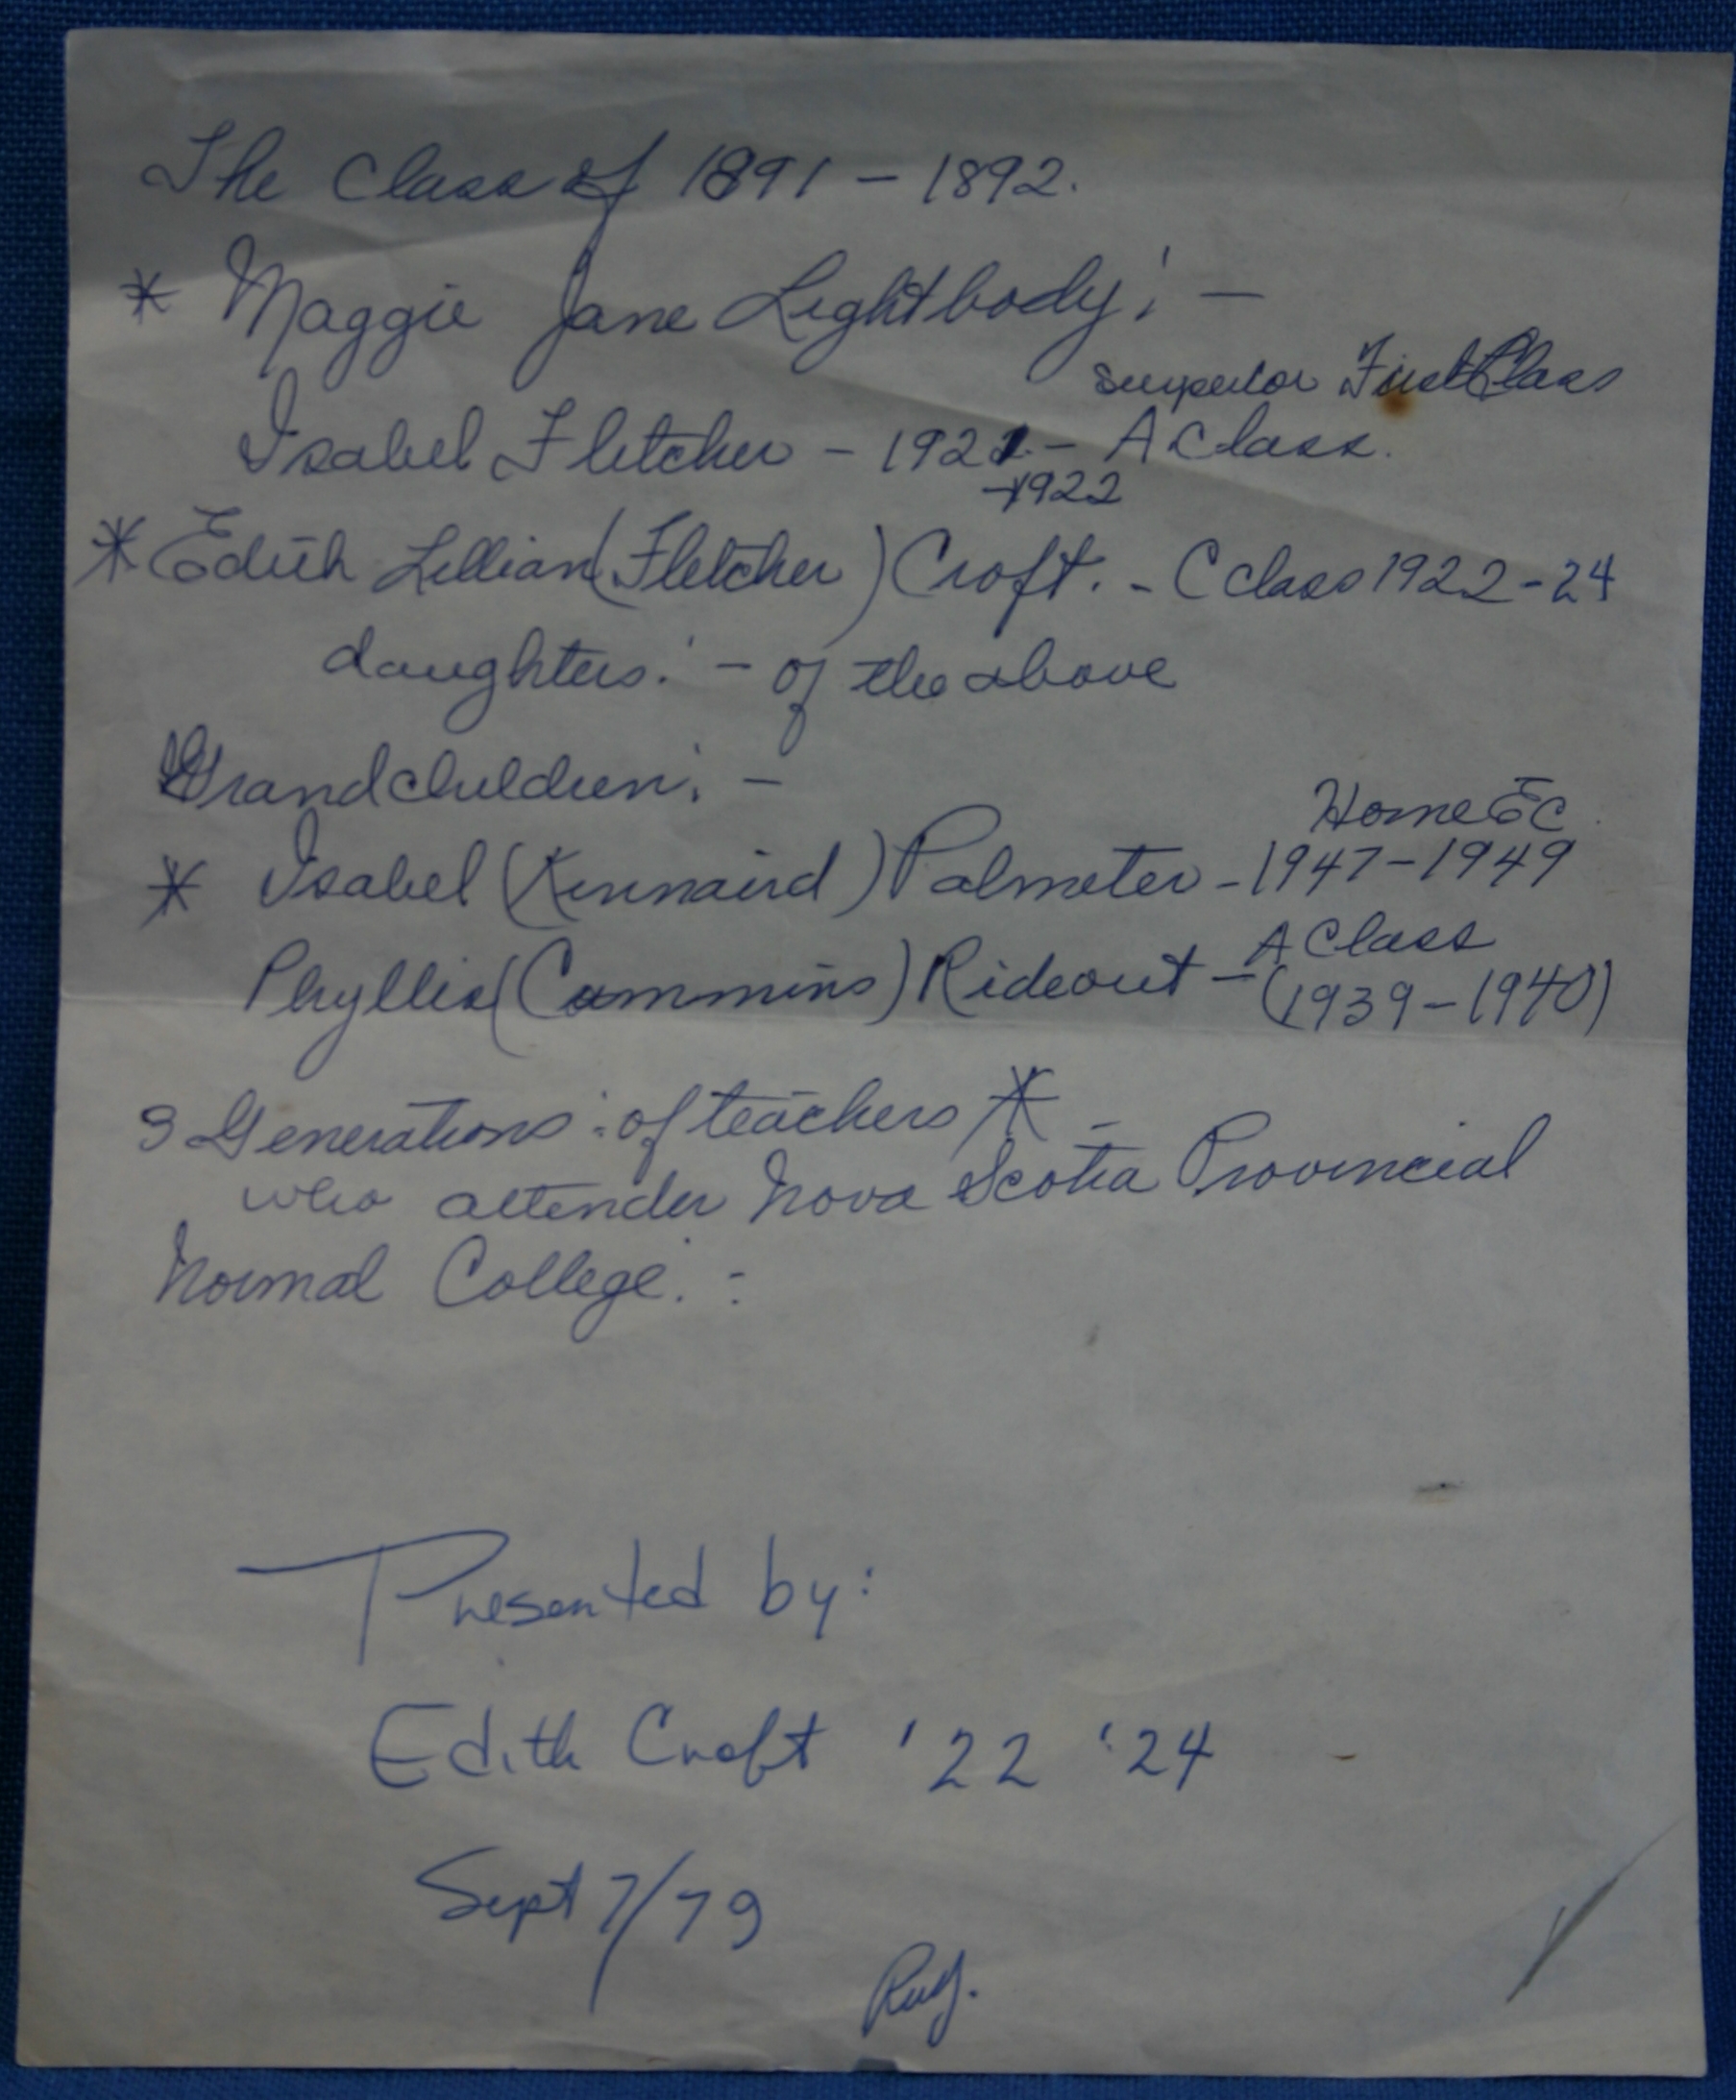 The Class of 1891 - 1892.
* Maggie Jane Lightbody: -
Superior First Class
Isabel Fletcher - 1921 - A Class.
-1922
* Edith Lillian (Fletcher) Croft. - C class 1922-24
daughters: - of the above
Grandchildren: -
Home Ec
* Isabel (Kinnaird) Palmeter - 1947-1949
A Class
Phyllis (Cummins) Rideout - (1939-1940)
3 Generations: of teachers * -
who attender Nova Scotia Provincial
Normal College. :
Presented by:
Edith Croft '22 '24
Sept 7/79